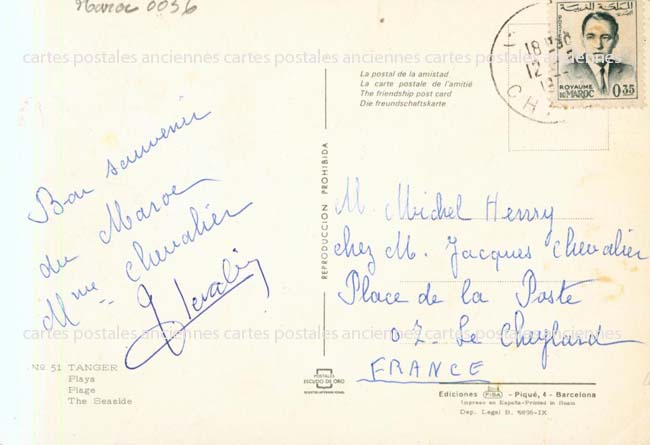 Maroc 0036
cartes postales anciennes cartes postales anciennes cartes postales anciennes
La postal de la amistad
La carte postale de l'amitié
The friendship post card
Die freundschaftskarte
18
12
المملكة المغربية
ROYAUME
DU MAROC
0.35
Bon souvenir
du Maroc
Mme Chevalier
REPRODUCCION PROHIBIDA
M. Michel Henry
chez M. Jacques Chevalier
Place de la Poste
07. Le Cheylard
FRANCE
cartes postales anciennes cartes postales anciennes cartes postales anciennes
Nº 51 TANGER
Playa
Plage
The Seaside
POSTALES
ESCUDO DE ORO
Ediciones FISA - Piqué, 4 - Barcelona
Impreso en España-Printed in Spain
Dep. Legal B.